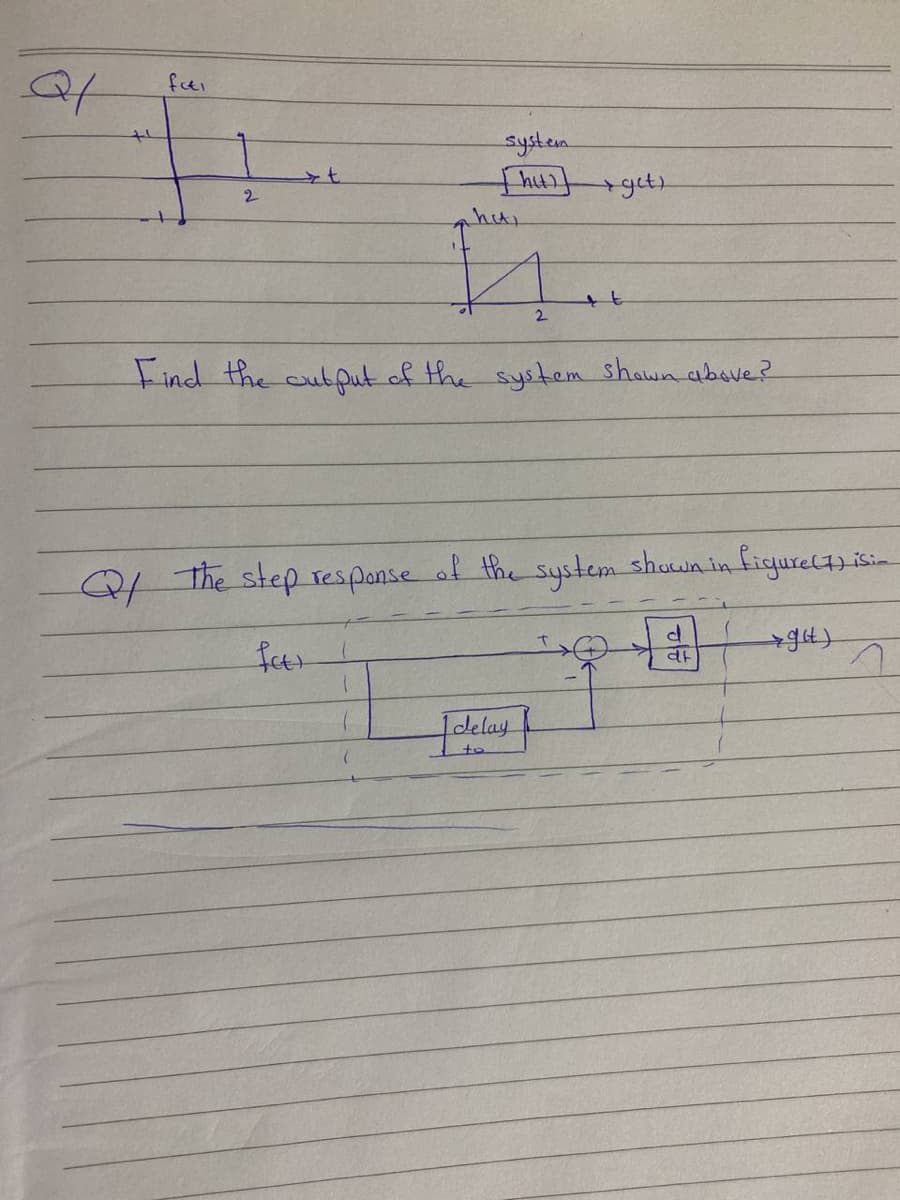 Q/ f(t)
+1
system
h(t) g(t)
t
2
-1
h(t)
1
t
0 2
Find the output of the system shown above?
Q/ The step response of the system shown in figure(7) is:-
f(t) + + d/dt g(t)
-
delay
to